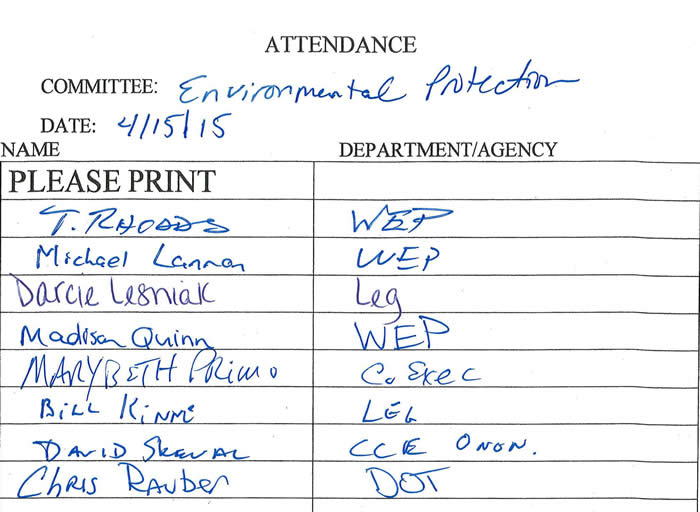 ATTENDANCE
COMMITTEE: Environmental Protection
DATE: 4/15/15
NAME DEPARTMENT/AGENCY
PLEASE PRINT
T. RHOADS WEP
Michael Lannon WEP
Darcie Lesniak Leg
Madison Quinn WEP
MARYBETH PRIMO Co Exec
BILL KINNE LEG
DAVID SKEVAL CCE ONON.
CHRIS RAUBER DOT